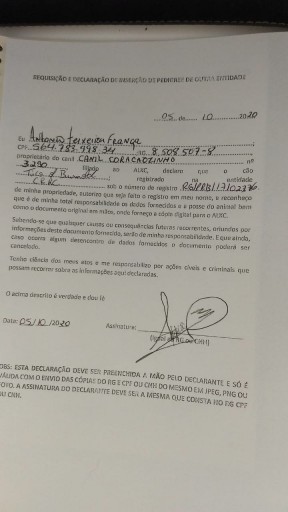 REQUISIÇÃO E DECLARAÇÃO DE INSERÇÃO DE PEDIGREE DE OUTRA ENTIDADE
05 de 10 2020
Eu Antonio Teixeira França
CPF 564.788.998.34 RG 8.508.507-8
proprietário do canil CANIL CORACAOZINHO nº
3.290 filiado ao ALKC, declaro que o cão
registrado na entidade
sob o número de registro
de minha propriedade, autorizo que seja feito o registro em meu nome, e reconheço
que é de minha total responsabilidade os dados fornecidos e a posse do animal bem
como o documento original em mãos, onde forneço a cópia digital para o ALKC.
Sabendo-se que quaisquer causas ou consequências futuras recorrentes, oriundas por
informações deste documento fornecido, serão de minha responsabilidade. E que ainda,
caso ocorra algum desencontro de dados fornecidos o documento poderá ser
cancelado.
Tenho ciência dos meus atos e me responsabilizo por ações cíveis e criminais que
possam recorrer sobre as informações aqui declaradas.
O acima descrito é verdade e dou fé
Data: 05/10/2020 Assinatura:
(Igual ao RG ou CNH)
OBS: ESTA DECLARAÇÃO DEVE SER PREENCHIDA A MÃO PELO DECLARANTE E SÓ É
VÁLIDA COM O ENVIO DAS CÓPIAS DO RG E CPF OU CNH DO MESMO EM JPEG, PNG OU
FOTO. A ASSINATURA DO DECLARANTE DEVE SER A MESMA QUE CONSTA NO RG CPF
OU CNH.